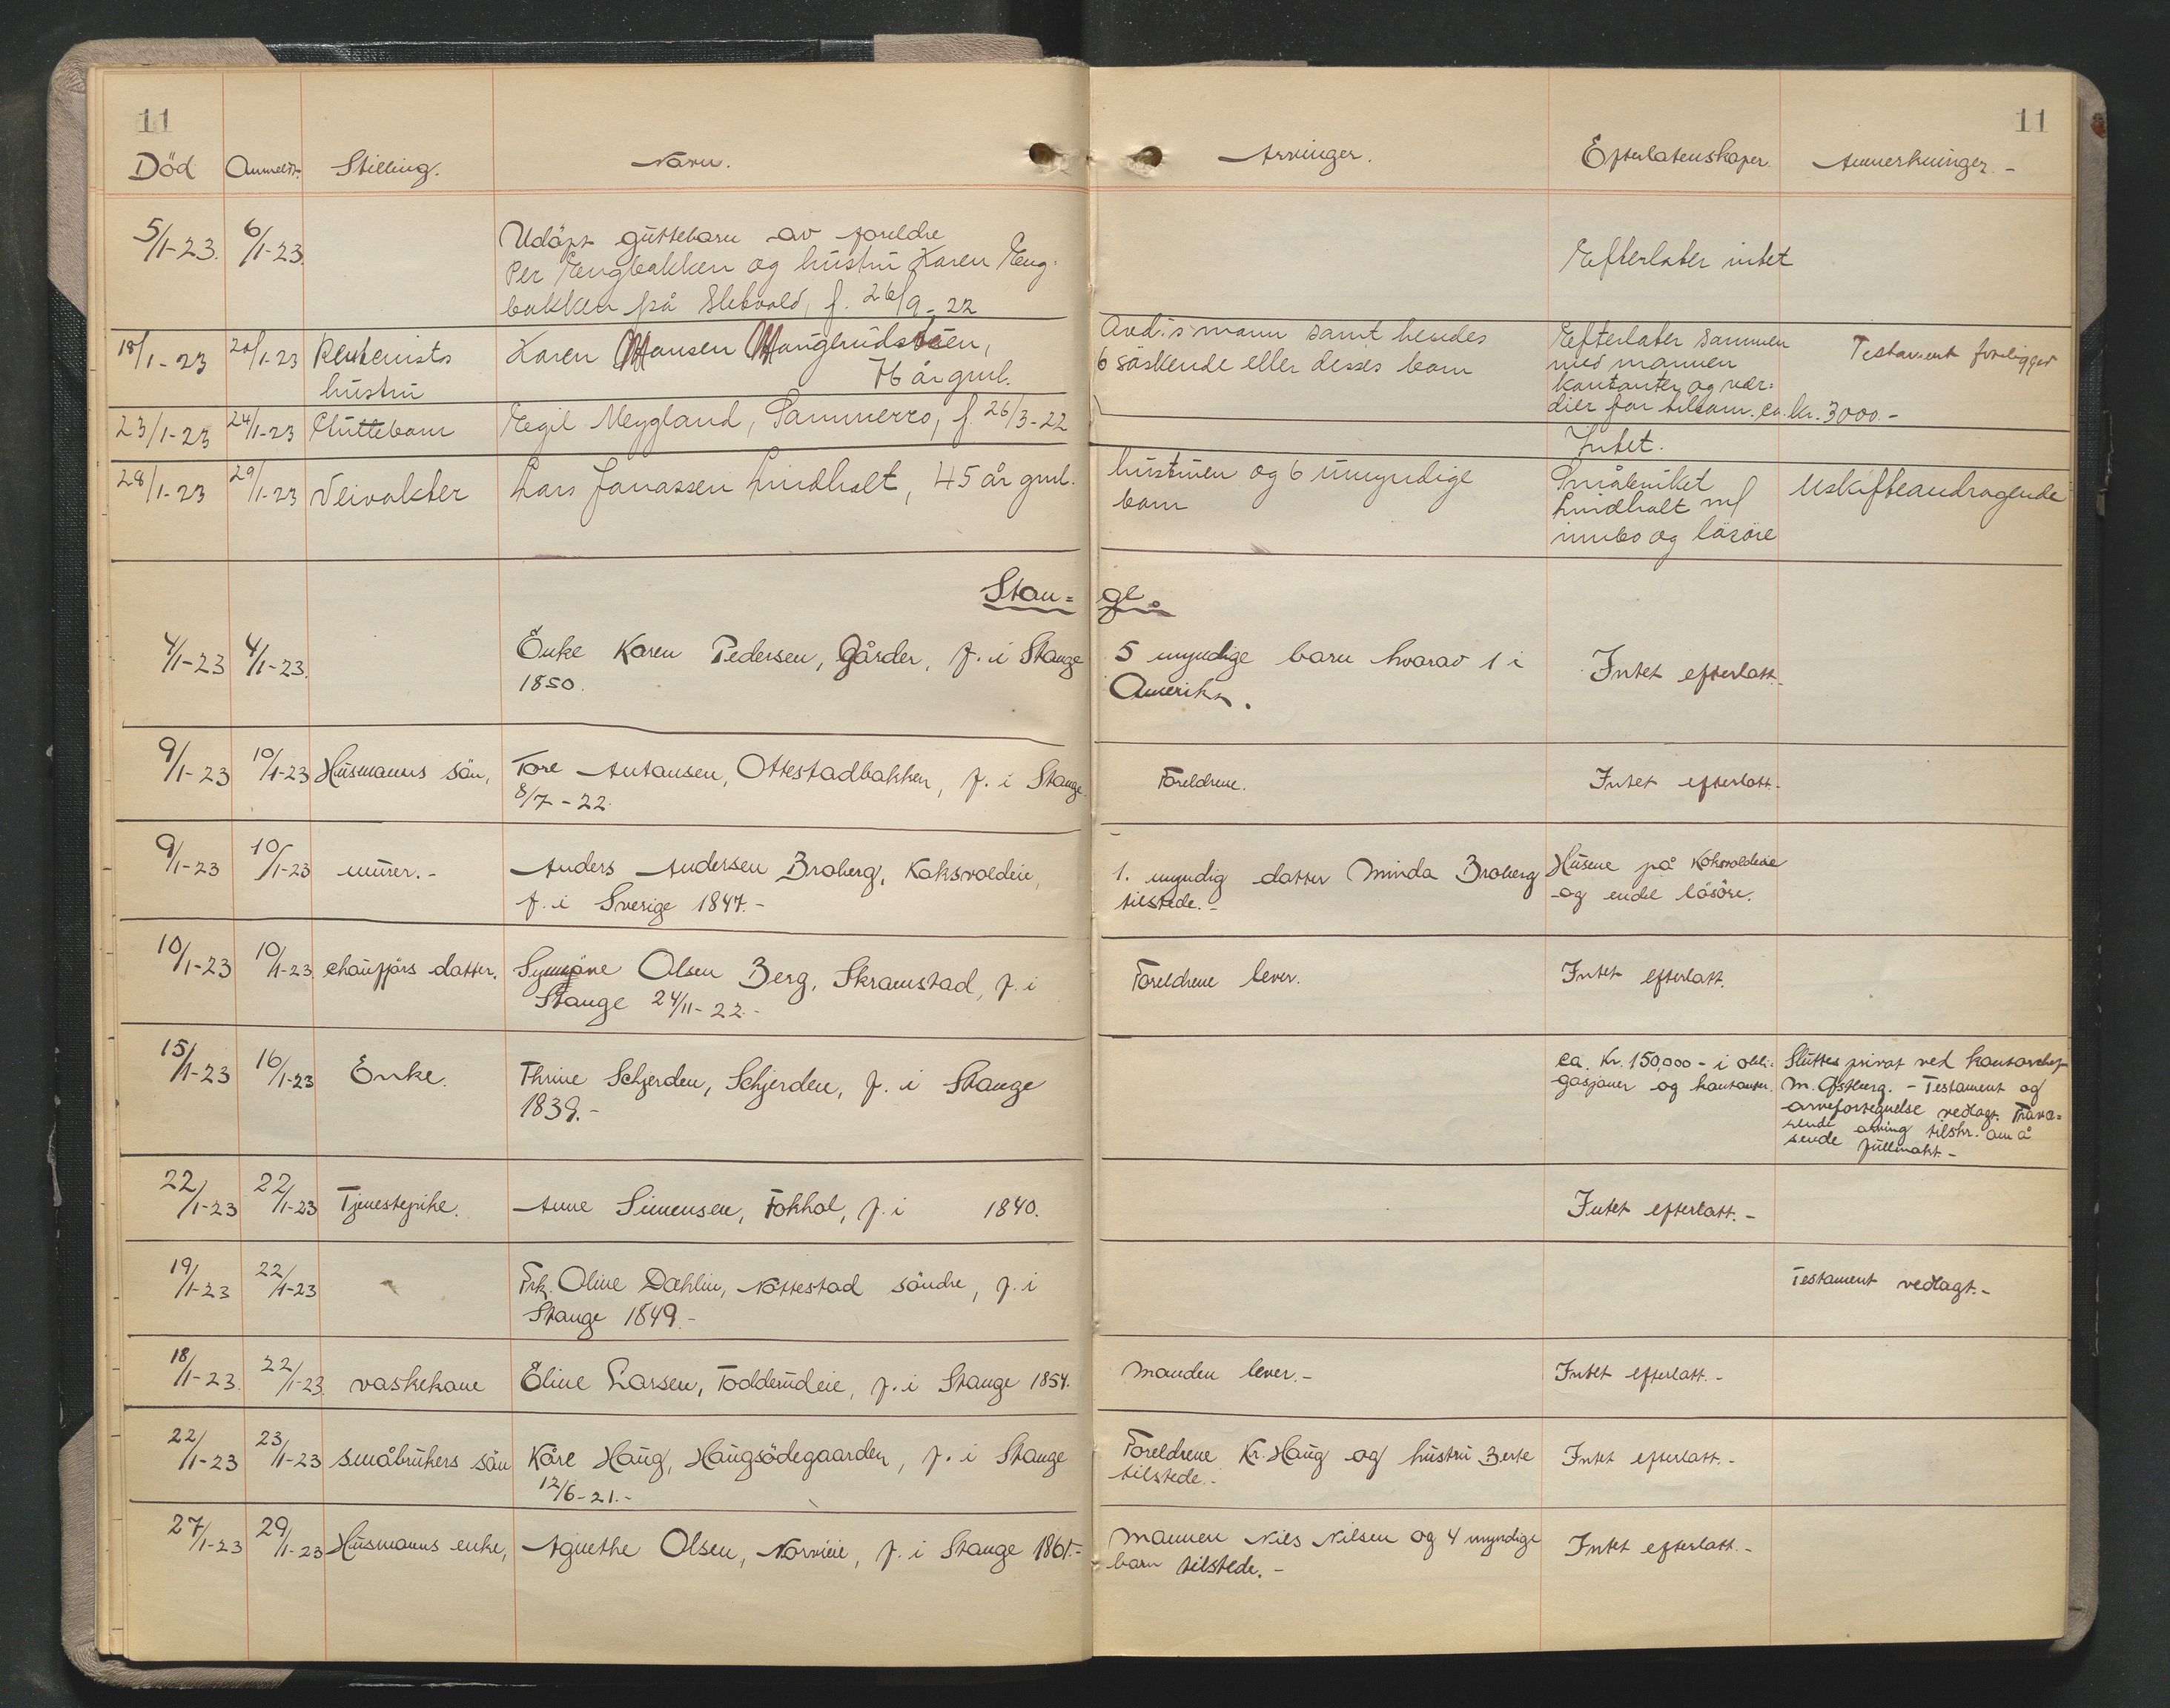 11
11
Död Anmeldt. Stilling. Navn. Arvinger. Efterlatenskaper. Anmerkninger. -
5/1-23. 6/1-23. Udöpt guttebarn av foreldre
Per Engbakken og hustru Karen Eng-
bakken på f. 26/9-22
Efterlater intet
18/1-23 20/1-23 Rentenists
hustru
Karen Hansen
76 år gml.
Avd.s mann samt hendes
6 söskende eller desses barn
Efterlater sammen
med mannen
kontanter og vær-
dier for tilsam. ca. kr. 3000.-
Testament foreligger
23/1-23 24/1-23 Guttebarn Egil Meygland, Sammerro, f. 26/3-22
Intet.
28/1-23 29/1-23 Veivokter Lars Jonassen Lindholt, 45 år gml.
hustruen og 6 umyndige
barn
Småbruket
Lindholt m/
innbo og lösöre
Uskifteandragende
Stan= ge.
4/1-23 4/1-23. Enke Karen Pedersen, Gårder, f. i Stange
1850.
5 myndige barn hvorav 1 i
Amerika.
Intet efterlatt.-
9/1-23 10/1-23 Husmanns sön, Tore Antonsen, Ottestadbakken, f. i Stange
8/7-22.
Foreldrene.
Intet efterlatt.-
9/1-23 10/1-23 murer.- Anders Andersen Broberg, Koksvoldeie,
f. i Sverige 1847.-
1. myndig datter Minda Broberg
tilstede.-
Husene på Koksvoldeie
og endel lösöre.
10/1-23 10/1-23 chaufförs datter. Synnöve Olsen Berg, Skramstad, f. i
Stange 24/11-22.-
Foreldrene lever.
Intet efterlatt.
15/1-23 16/1-23 Enke. Thrine Schjerden, Schjerden, f. i Stange
1839.-
ca. Kr. 150,000- i obli-
gasjoner og kontanter.
Sluttes privat ved kontorchef
M. Østberg. - Testament og
arvefortegnelse vedlagt. Fravæ-
rende arving tilskr. om å
sende fullmakt.-
22/1-23 22/1-23 Tjenestepike. Anne Simensen, Fokhol, f. i 1840.
Intet efterlatt.-
19/1-23 22/1-23 Frk. Oline Dahlin, Nottestad söndre, f. i
Stange 1849.-
Testament vedlagt.-
18/1-23. 22/1-23. vaskekone Eline Larsen, Todderudeie, f. i Stange 1854.
Manden lever.-
Intet efterlatt.-
22/1-23 23/1-23 småbrukers sön Kåre Haug, Haugsödegaarden, f. i Stange
12/6-21.-
Foreldrene Kr. Haug og hustru Berte
tilstede.-
Intet efterlatt.-
27/1-23 29/1-23 Husmanns enke, Agnethe Olsen, f. i Stange 1861.-
Mannen Nils Nilsen og 4 myndige
barn tilstede.-
Intet efterlatt.-